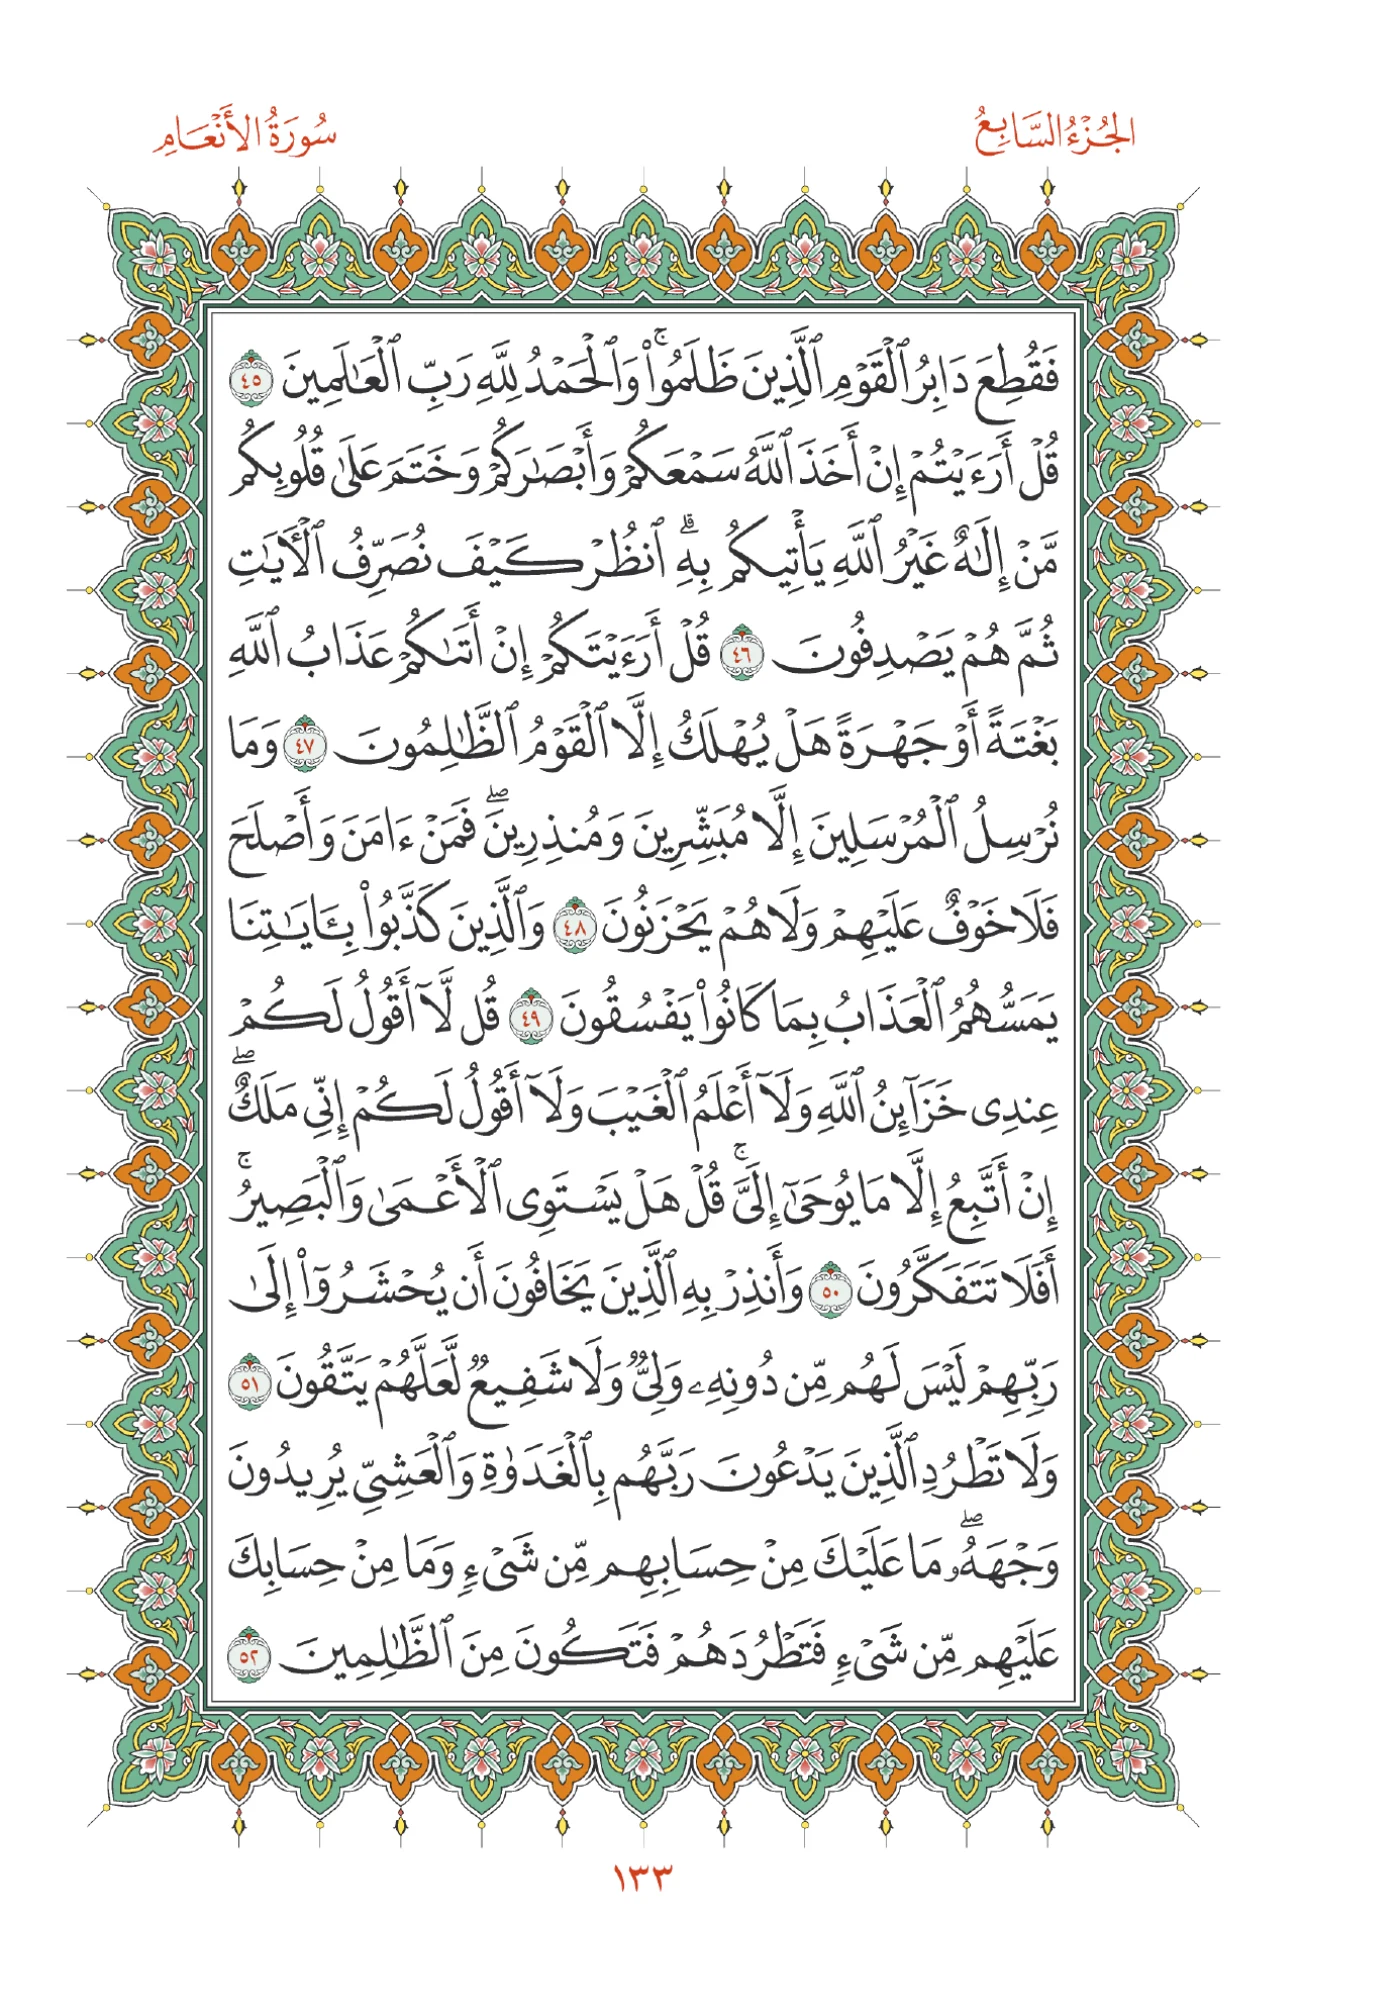 الجُزْءُ السَّابِعُ
سُورَةُ الأَنْعَامِ
فَقُطِعَ دَابِرُ ٱلْقَوْمِ ٱلَّذِينَ ظَلَمُوا۟ۚ وَٱلْحَمْدُ لِلَّهِ رَبِّ ٱلْعَٰلَمِينَ ٤٥
قُلْ أَرَءَيْتُمْ إِنْ أَخَذَ ٱللَّهُ سَمْعَكُمْ وَأَبْصَٰرَكُمْ وَخَتَمَ عَلَىٰ قُلُوبِكُم
مَّنْ إِلَٰهٌ غَيْرُ ٱللَّهِ يَأْتِيكُم بِهِۗ ٱنظُرْ كَيْفَ نُصَرِّفُ ٱلْءَايَٰتِ
ثُمَّ هُمْ يَصْدِفُونَ ٤٦ قُلْ أَرَءَيْتَكُمْ إِنْ أَتَىٰكُمْ عَذَابُ ٱللَّهِ
بَغْتَةً أَوْ جَهْرَةً هَلْ يُهْلَكُ إِلَّا ٱلْقَوْمُ ٱلظَّٰلِمُونَ ٤٧ وَمَا
نُرْسِلُ ٱلْمُرْسَلِينَ إِلَّا مُبَشِّرِينَ وَمُنذِرِينَۖ فَمَنْ ءَامَنَ وَأَصْلَحَ
فَلَا خَوْفٌ عَلَيْهِمْ وَلَا هُمْ يَحْزَنُونَ ٤٨ وَٱلَّذِينَ كَذَّبُوا۟ بِـَٔايَٰتِنَا
يَمَسُّهُمُ ٱلْعَذَابُ بِمَا كَانُوا۟ يَفْسُقُونَ ٤٩ قُل لَّآ أَقُولُ لَكُمْ
عِندِى خَزَآئِنُ ٱللَّهِ وَلَآ أَعْلَمُ ٱلْغَيْبَ وَلَآ أَقُولُ لَكُمْ إِنِّى مَلَكٌۖ
إِنْ أَتَّبِعُ إِلَّا مَا يُوحَىٰٓ إِلَىَّۚ قُلْ هَلْ يَسْتَوِى ٱلْأَعْمَىٰ وَٱلْبَصِيرُۚ
أَفَلَا تَتَفَكَّرُونَ ٥٠ وَأَنذِرْ بِهِ ٱلَّذِينَ يَخَافُونَ أَن يُحْشَرُوٓا۟ إِلَىٰ
رَبِّهِمْ لَيْسَ لَهُم مِّن دُونِهِۦ وَلِىٌّ وَلَا شَفِيعٌ لَّعَلَّهُمْ يَتَّقُونَ ٥١
وَلَا تَطْرُدِ ٱلَّذِينَ يَدْعُونَ رَبَّهُم بِٱلْغَدَوٰةِ وَٱلْعَشِىِّ يُرِيدُونَ
وَجْهَهُۥۖ مَا عَلَيْكَ مِنْ حِسَابِهِم مِّن شَىْءٍ وَمَا مِنْ حِسَابِكَ
عَلَيْهِم مِّن شَىْءٍ فَتَطْرُدَهُمْ فَتَكُونَ مِنَ ٱلظَّٰلِمِينَ ٥٢
١٣٣